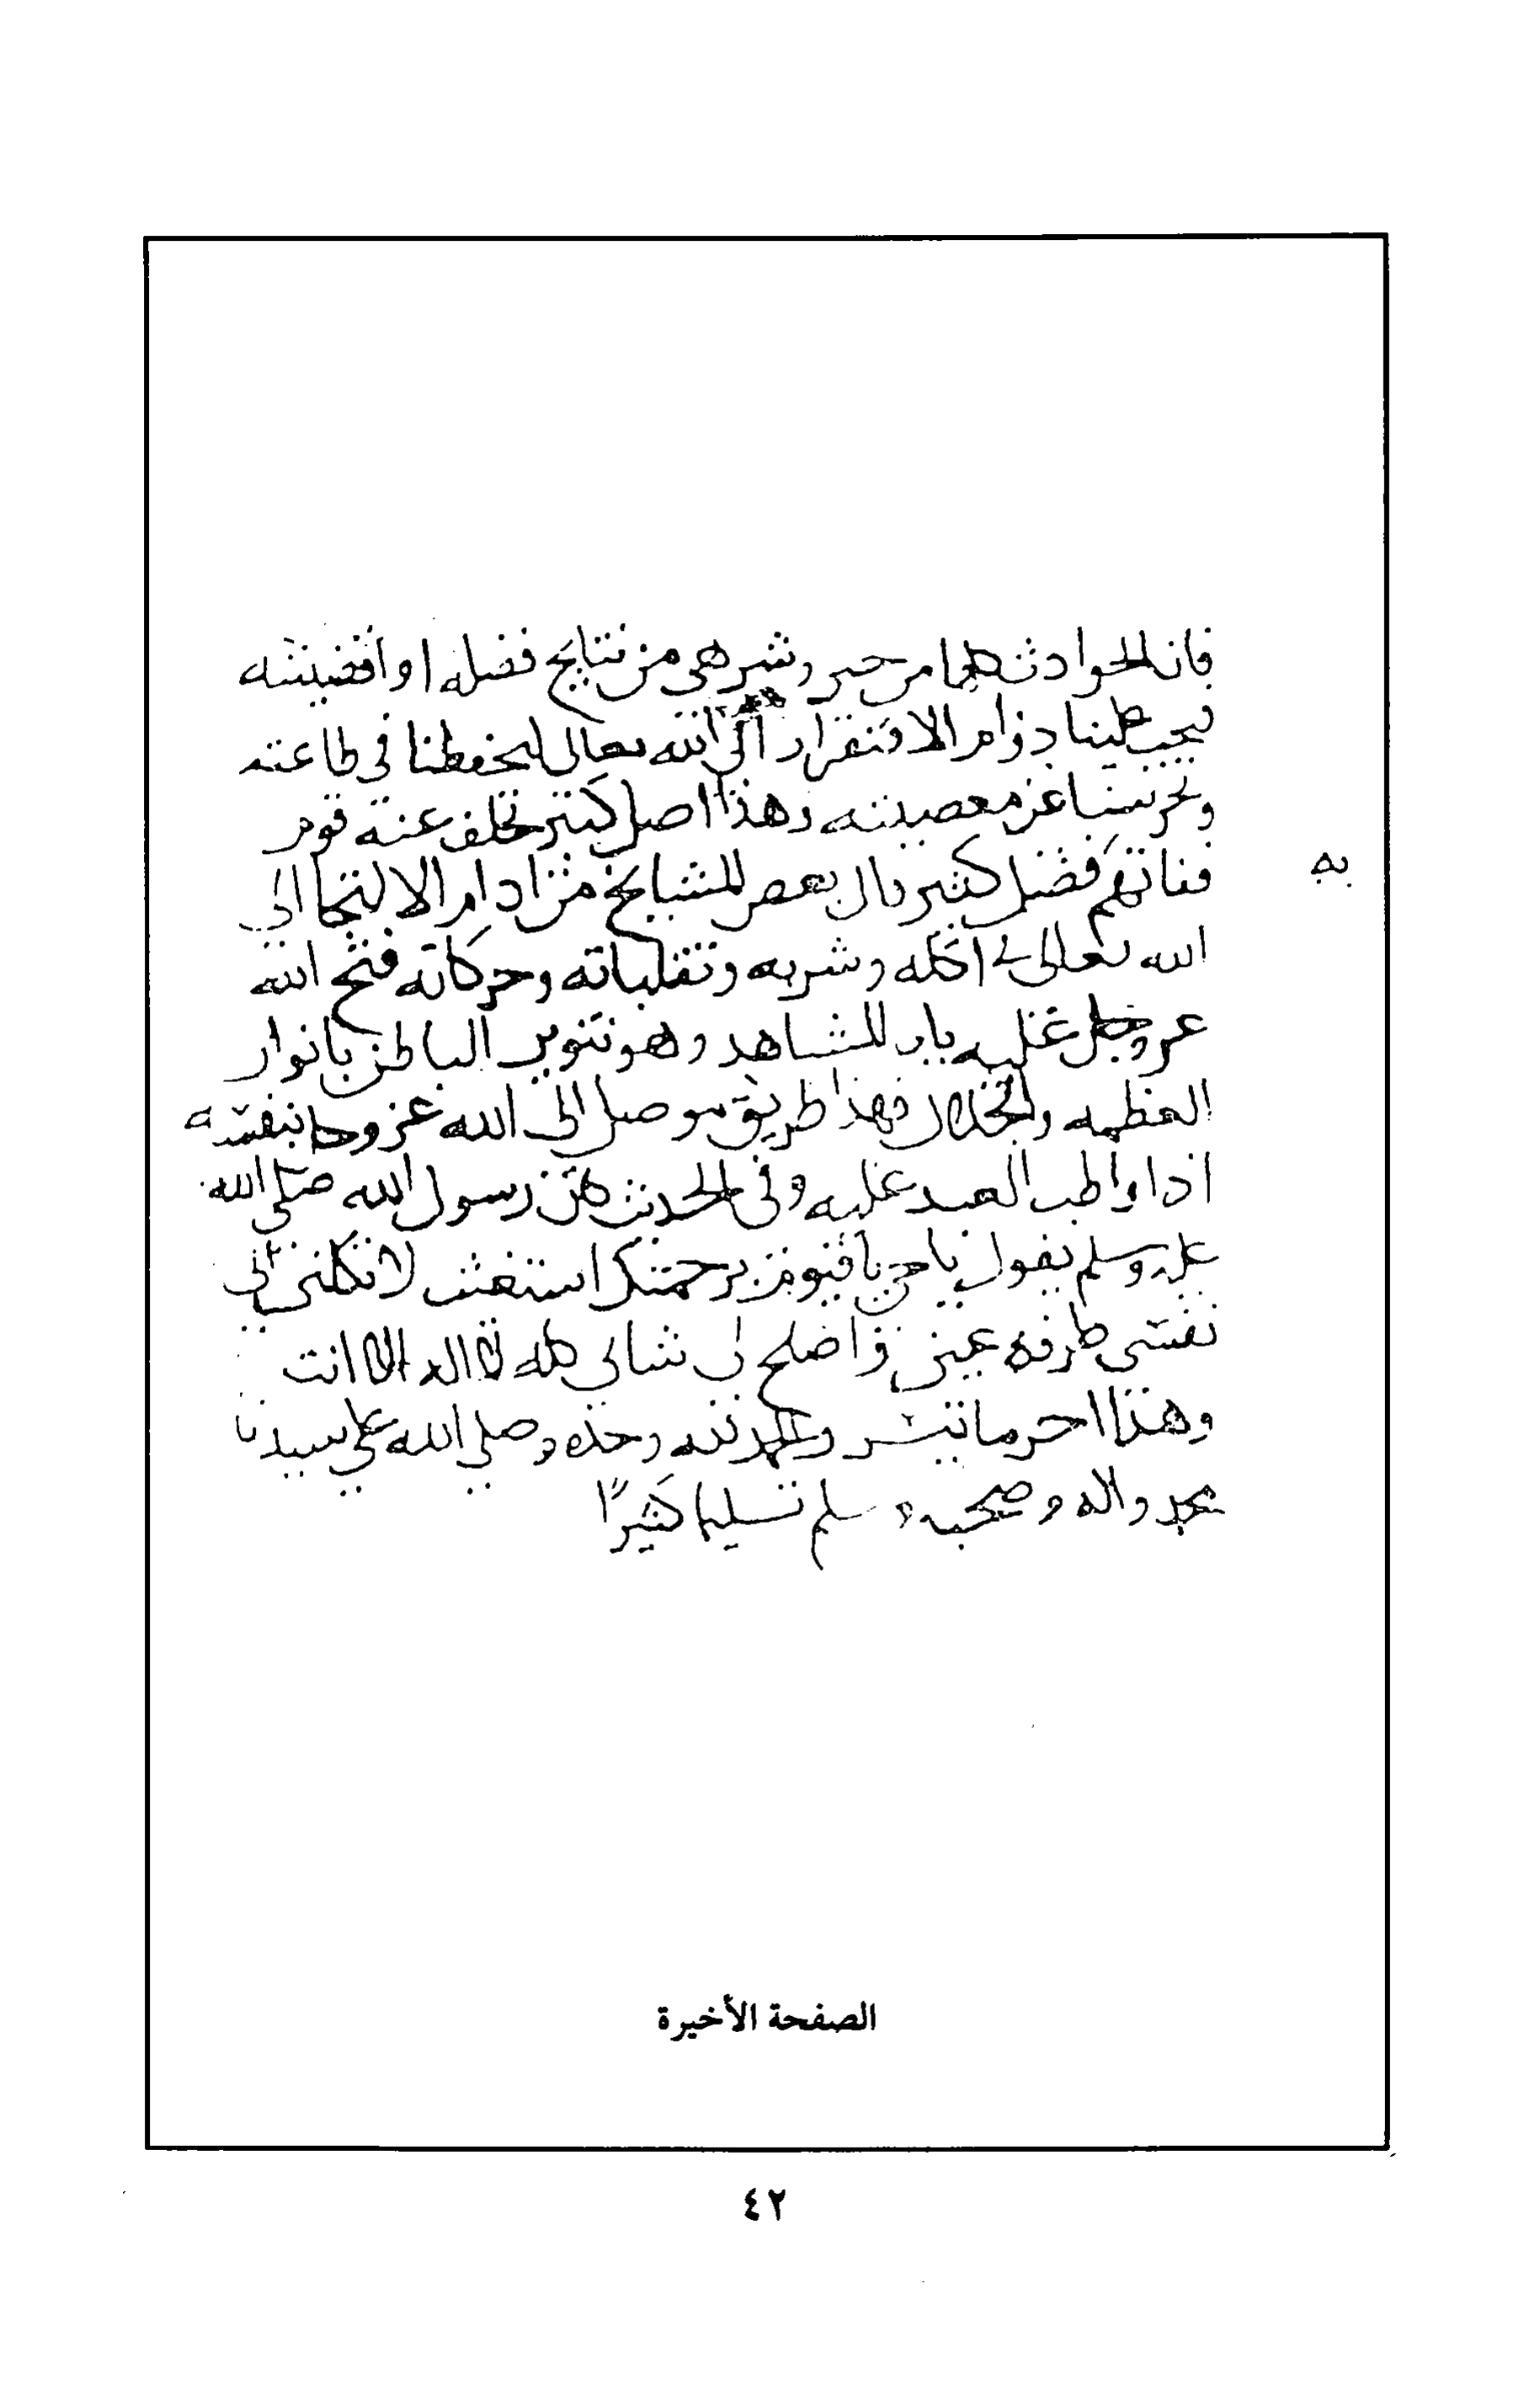 فان الحوادث كلها من خير وشر هي من نتايج فضله او اقضيته
فيجب علينا دوام الافتقار الى الله تعالى ليحفظنا في طاعته
ويحرسنا عن معصيته وهذا اصل كبير تخلف عنه قوم
ففاتهم فضل كثير قال بعض المشايخ من ادام الالتجا الى
به
الله تعالى في اكله وشربه وتقلباته وحركاته فتح الله
عز وجل عليه باب المشاهد وهو تنوير الباطن بانوار
العظمه والجلال فهذا طريق موصل الى الله عز وجل بنفسه
اذا واظب العبد عليه وفي الحديث كان رسول الله صلى الله
عليه وسلم يقول يا حي يا قيوم برحمتك استغيث لا تكلني الى
نفسي طرفة عين واصلح لي شاني كله لا اله الا انت
وهذا اخر ما تيسر والحمد لله وحده وصلى الله على سيدنا
محمد واله وصحبه وسلم تسليما كثيرًا
الصفحة الأخيرة
٤٢